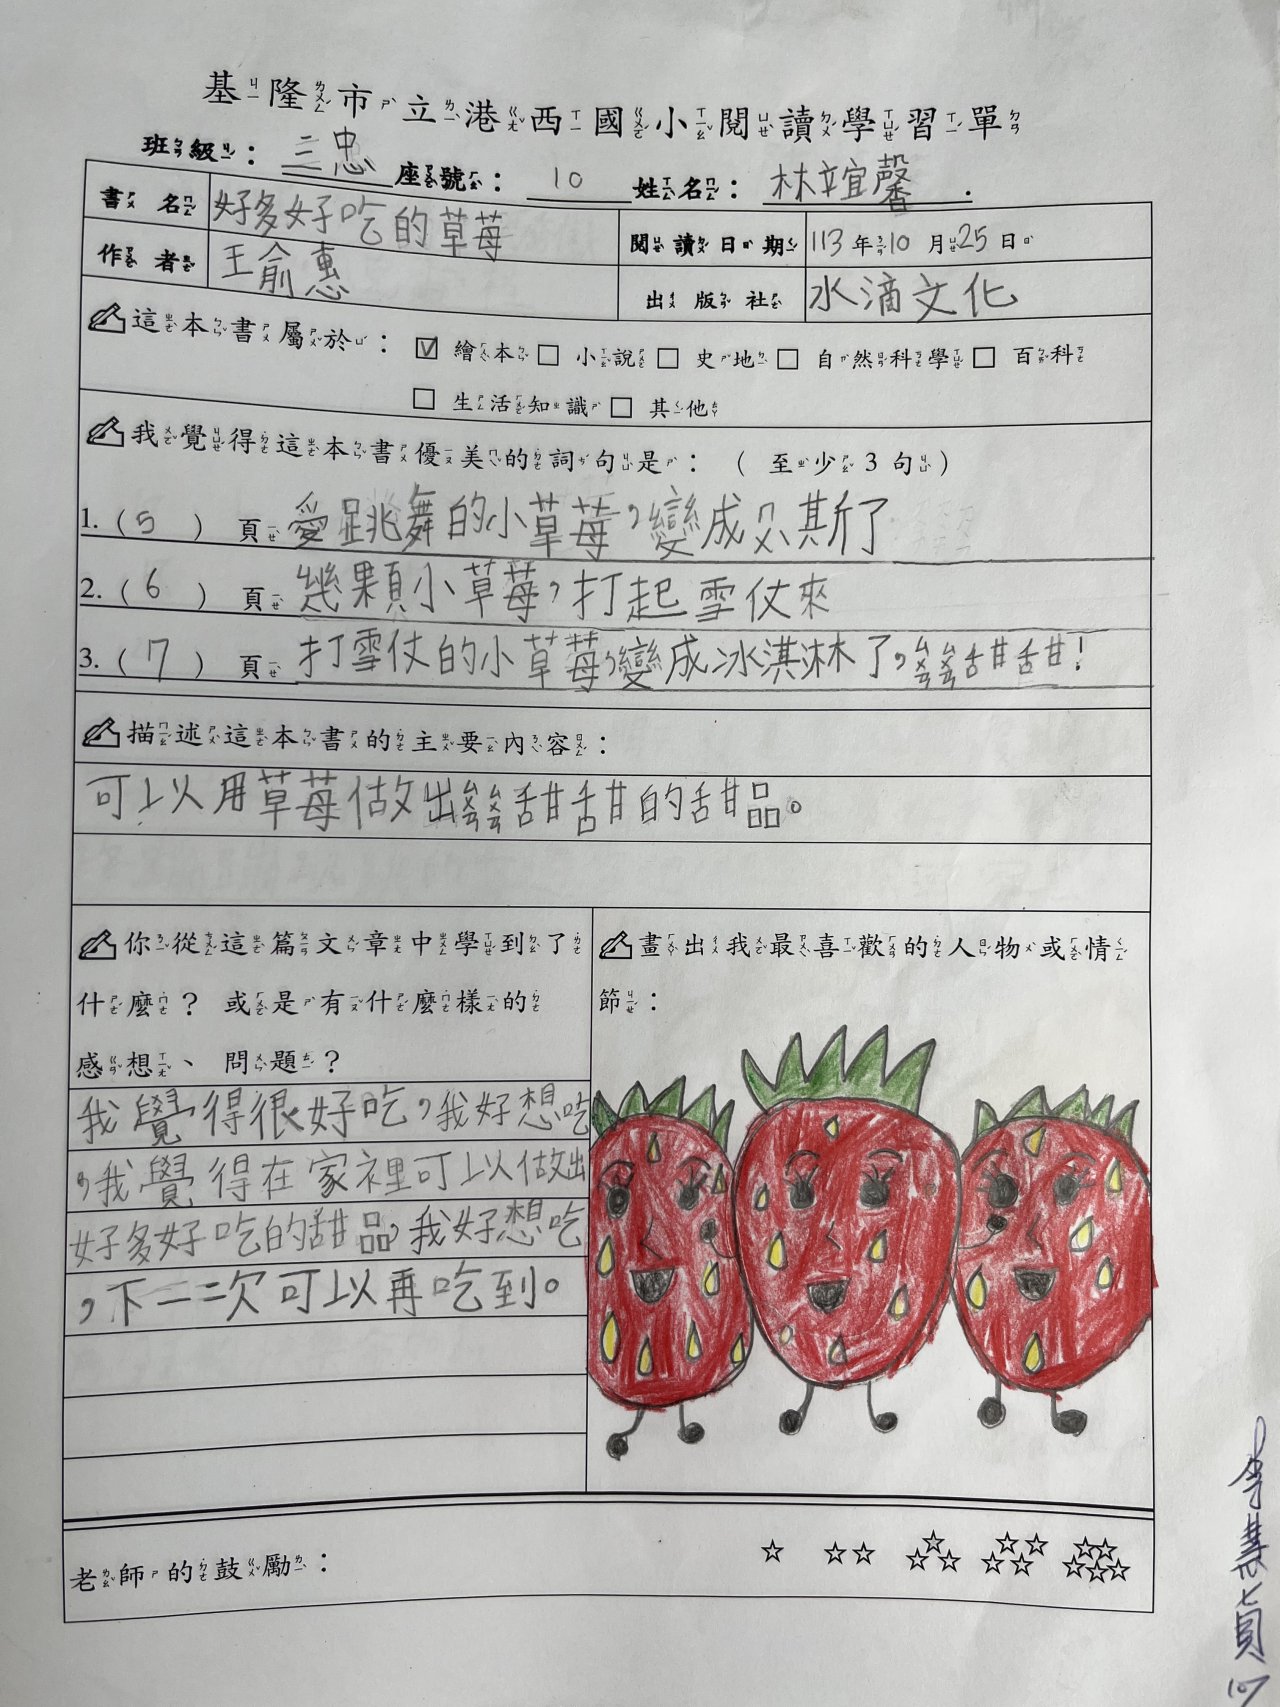 基隆市立港西國小閱讀學習單
班級：三忠 座號：10 姓名：林誼馨.
書名 好多好吃的草莓
作者 王俞惠
閱讀日期 113年10月25日
出版社 水滴文化
這本書屬於：☑繪本□小說□史地□自然科學□百科
□生活知識□其他
我覺得這本書優美的詞句是：（至少3句）
1.（5）頁 愛跳舞的小草莓，變成慕斯了
2.（6）頁 幾顆小草莓，打起雪仗來
3.（7）頁 打雪仗的小草莓，變成冰淇淋了，酸酸甜甜！
描述這本書的主要內容：
可以用草莓做出酸酸甜甜的甜品。
你從這篇文章中學到了
什麼？或是有什麼樣的
感想、問題？
我覺得很好吃，我好想吃
，我覺得在家裡可以做出
好多好吃的甜品，我好想吃
，下一次可以再吃到。
畫出我最喜歡的人物或情
節：
老師的鼓勵：☆ ☆☆ ☆☆☆ ☆☆☆☆ ☆☆☆☆☆